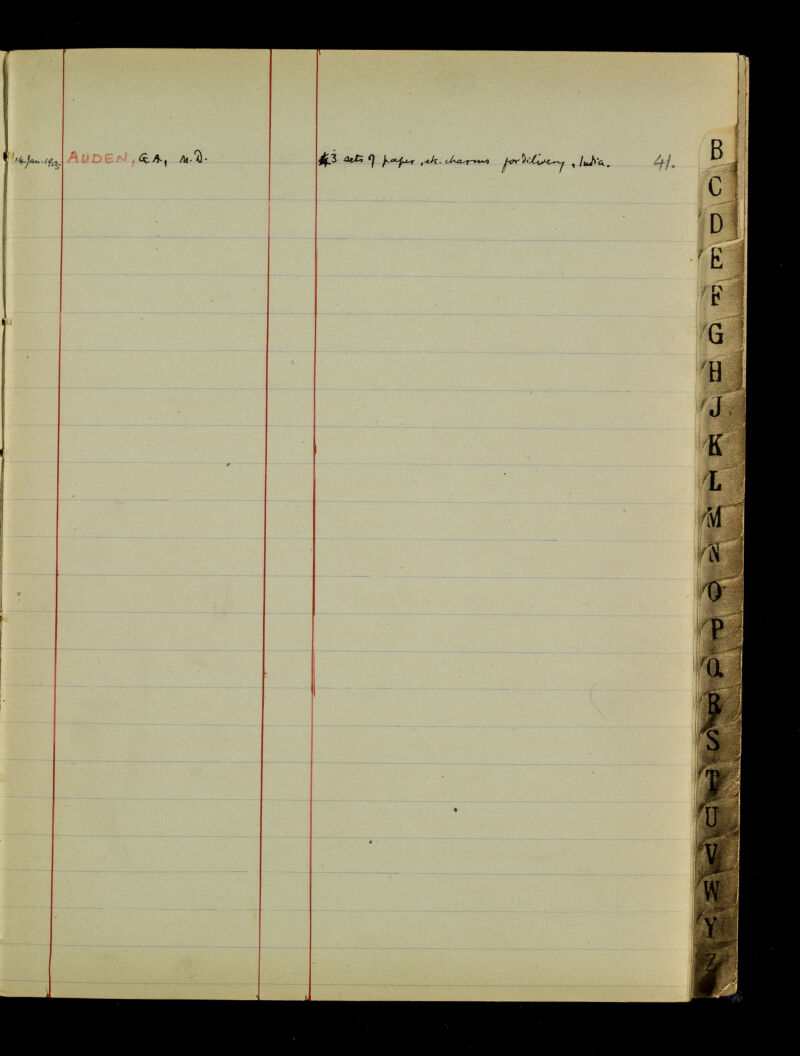 14. Jan. AUDEN, G. A., M. D. 3 sets of paper, etc. charms for delivery, India. 41.
B
C
D
E
F
G
H
J
K
L
M
N
O
P
Q
R
S
T
U
V
W
Y
Z